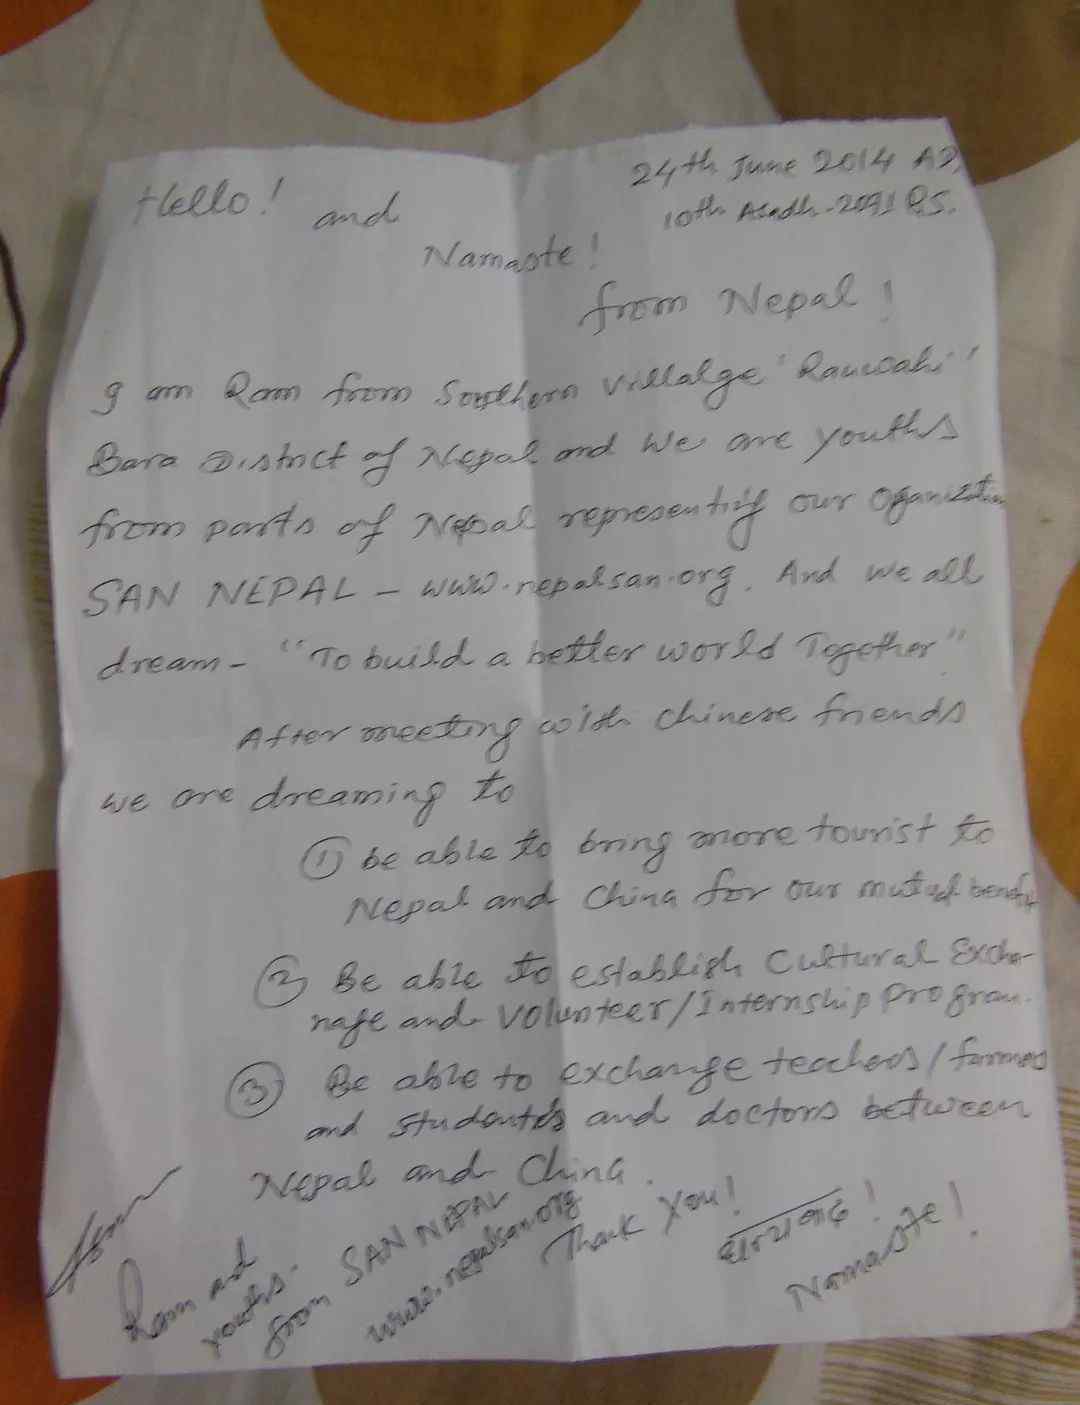 24th June 2014 AD,
10th Asadh-2071 B.S.
Hello! and
Namaste!
from Nepal!
I am Ram from Southern Villalge 'Rauwahi'
Bara District of Nepal and We are youths
from parts of Nepal representing our Oganization
SAN NEPAL - www.nepalsan.org. And we all
dream - "To build a better world Together"
After meeting with Chinese friends
we are dreaming to
① be able to bring more tourist to
Nepal and China for our mutual benefit
② Be able to establish Cultural Excha-
nage and Volunteer/Internship Program.
③ Be able to exchange teachers/farmers
and students and doctors between
Nepal and China.
Thank You!
धन्यवाद!
Namaste!
Ram and
youths.
from SAN NEPAL
www.nepalsan.org